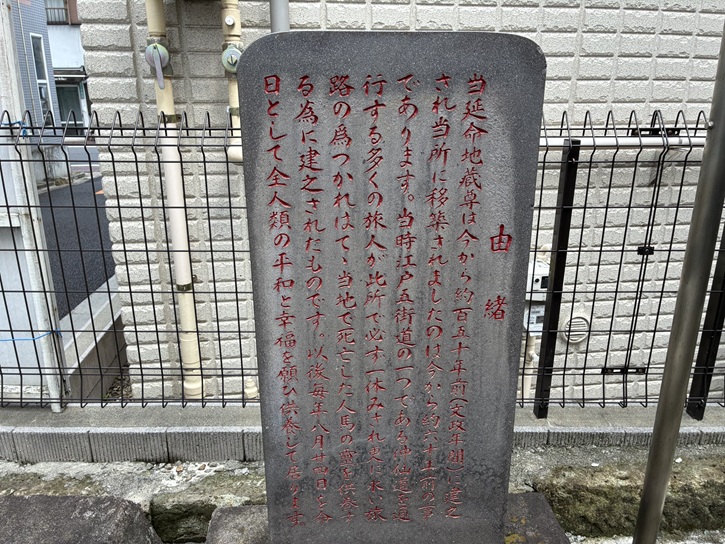 由緒
当延命地蔵尊は今から約百五十年前(文政年間)に建之
され当所に移築されましたのは今から約六十年前の事
であります。当時江戸五街道の一つである中仙道を通
行する多くの旅人が此所で必ず一休みされ更に永い旅
路の為つかれはてゝ当地で死亡した人馬の霊を供養す
る為に建之されたものです。以後毎年八月廿四日を命
日として全人類の平和と幸福を願ひ供養して居ります